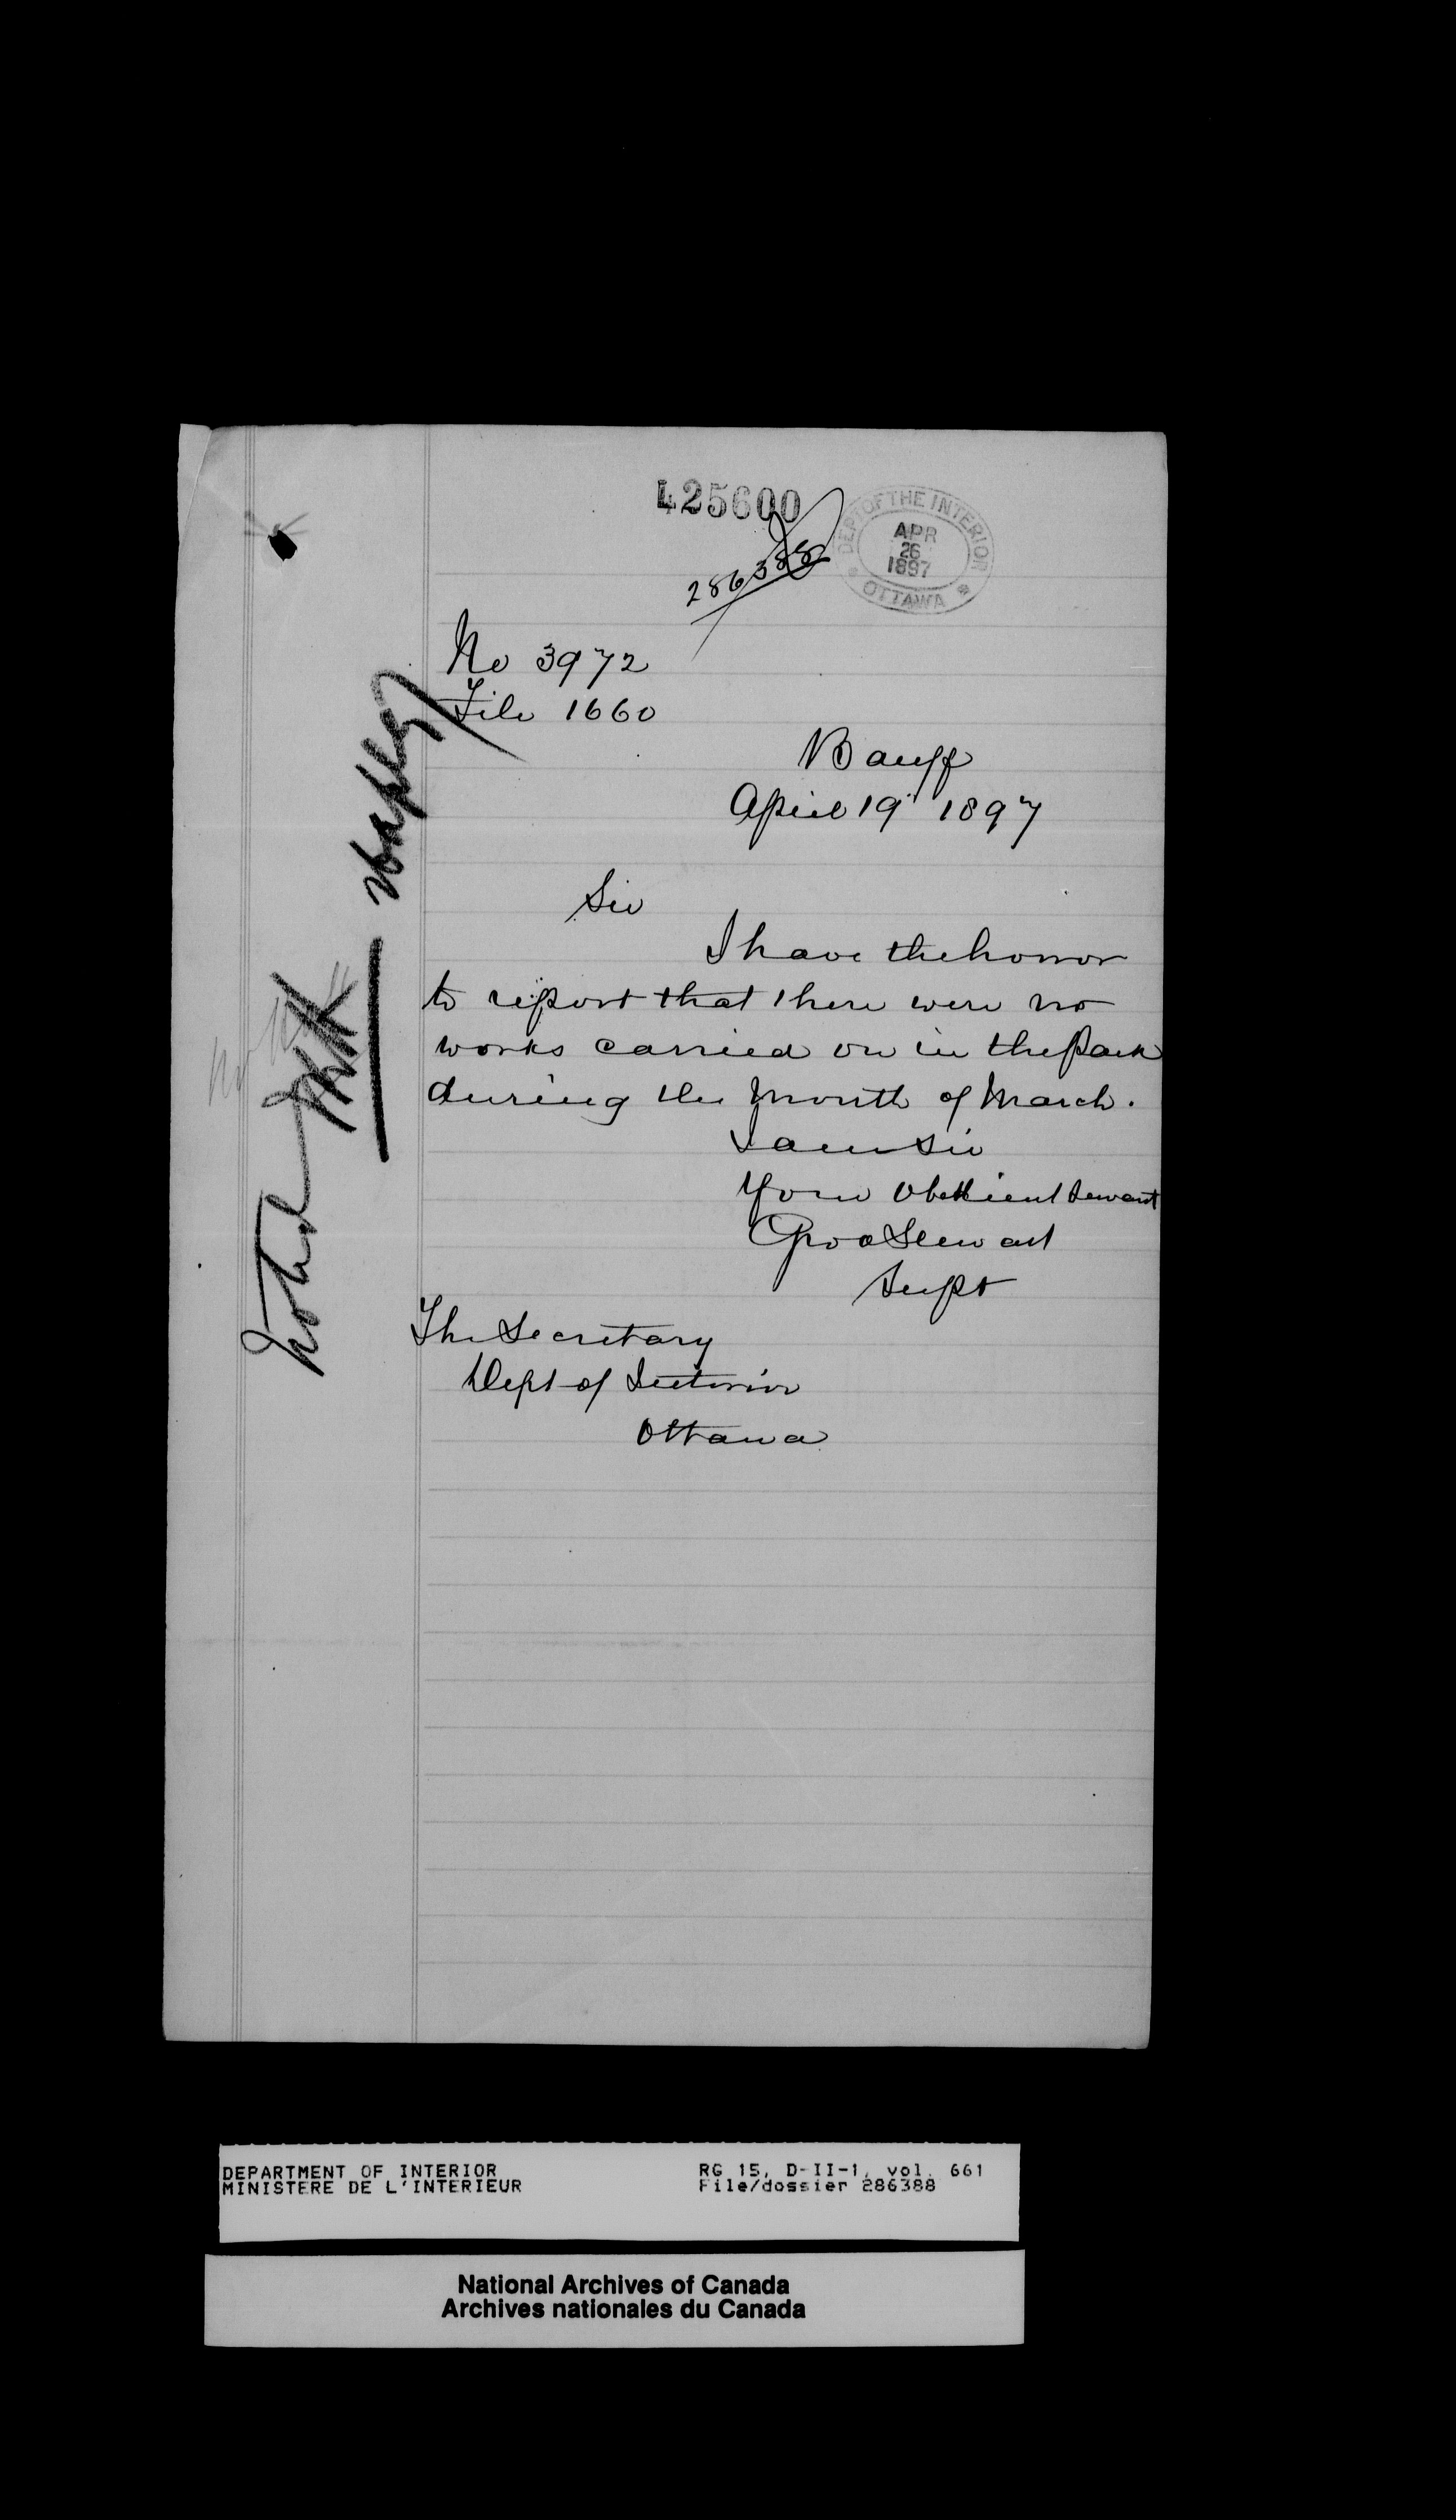 425600
286388
DEPT OF THE INTERIOR
APR
26
1897
OTTAWA
No 3972
File 1660
Banff
April 19" 1897
Sir
I have the honor
to report that there were no
works carried on in the Park
during the month of March.
I am Sir
Your Obedient Servant
Geo A Stewart
Supt
The Secretary
Dept of Interior
Ottawa
Noted
No reply
DEPARTMENT OF INTERIOR
MINISTERE DE L'INTERIEUR
RG 15, D-II-1, vol. 661
File/dossier 286388
National Archives of Canada
Archives nationales du Canada